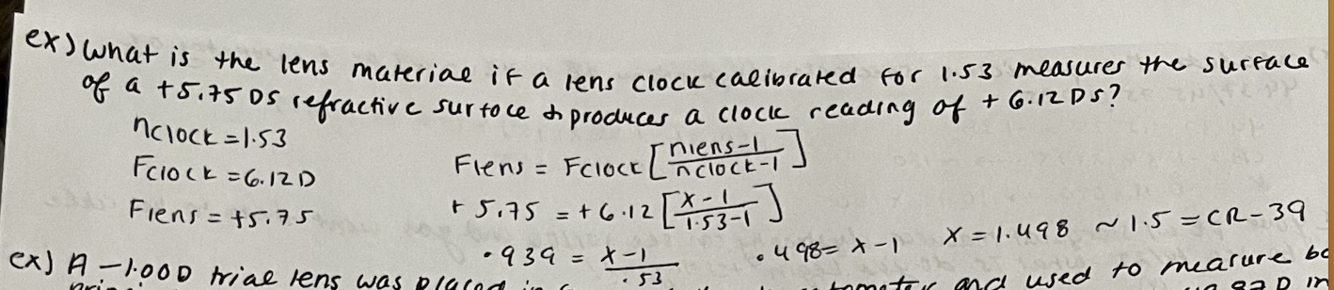 ex) what is the lens material if a lens clock calibrated for 1.53 measures the surface
of a +5.75 DS refractive surface & produces a clock reading of + 6.12 DS?
nclock = 1.53
Fclock = 6.12D
Flens = Fclock [nlens-1 / nclock-1]
Flens = +5.75
+ 5.75 = +6.12 [x-1 / 1.53-1]
.939 = x-1 / .53
.498 = x-1
x = 1.498 ~ 1.5 = CR-39
ex) A -1.00D trial lens was placed in
and used to measure
D in